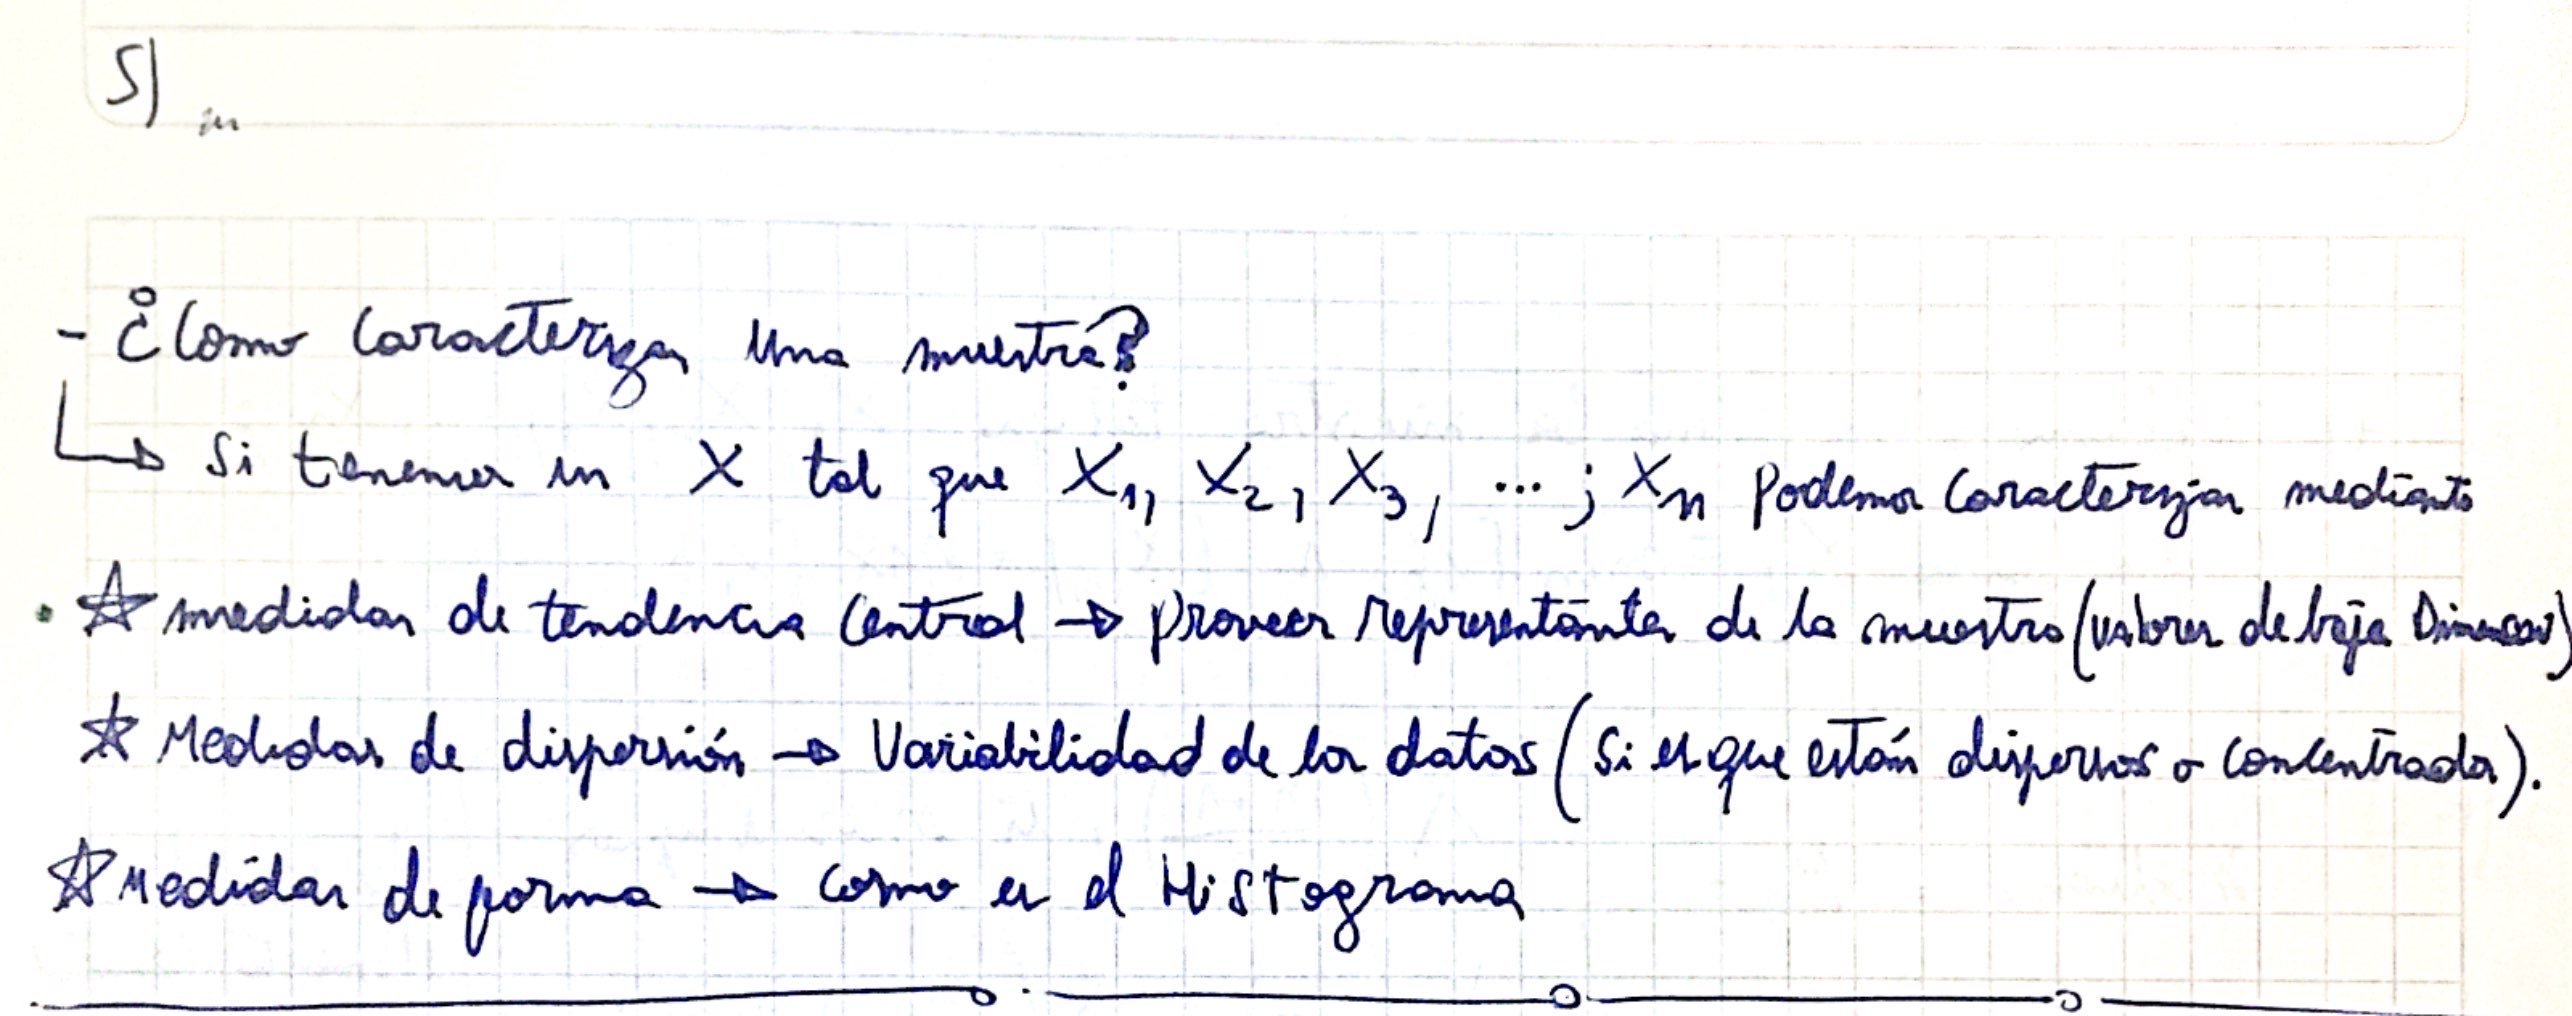 5)
- ¿Como caracterizar una muestra?
↳ Si tenemos un X tal que X₁, X₂, X₃, ...; Xₙ Podemos caracterizar mediante
☆ medidas de tendencia central → proveer representantes de la muestra (valores de baja Dimension)
☆ Medidas de dispersión → Variabilidad de los datos (Si es que están dispersos o concentrados).
☆ Medidas de forma → como es el Histograma